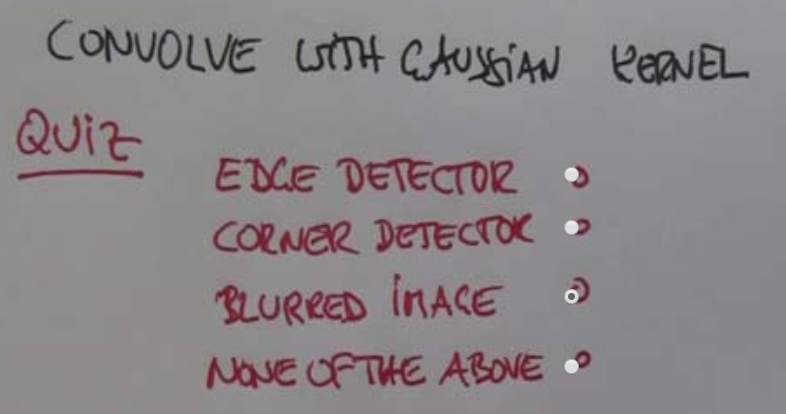 CONVOLVE WITH GAUSSIAN KERNEL
QUIZ
EDGE DETECTOR
CORNER DETECTOR
BLURRED IMAGE
NONE OF THE ABOVE